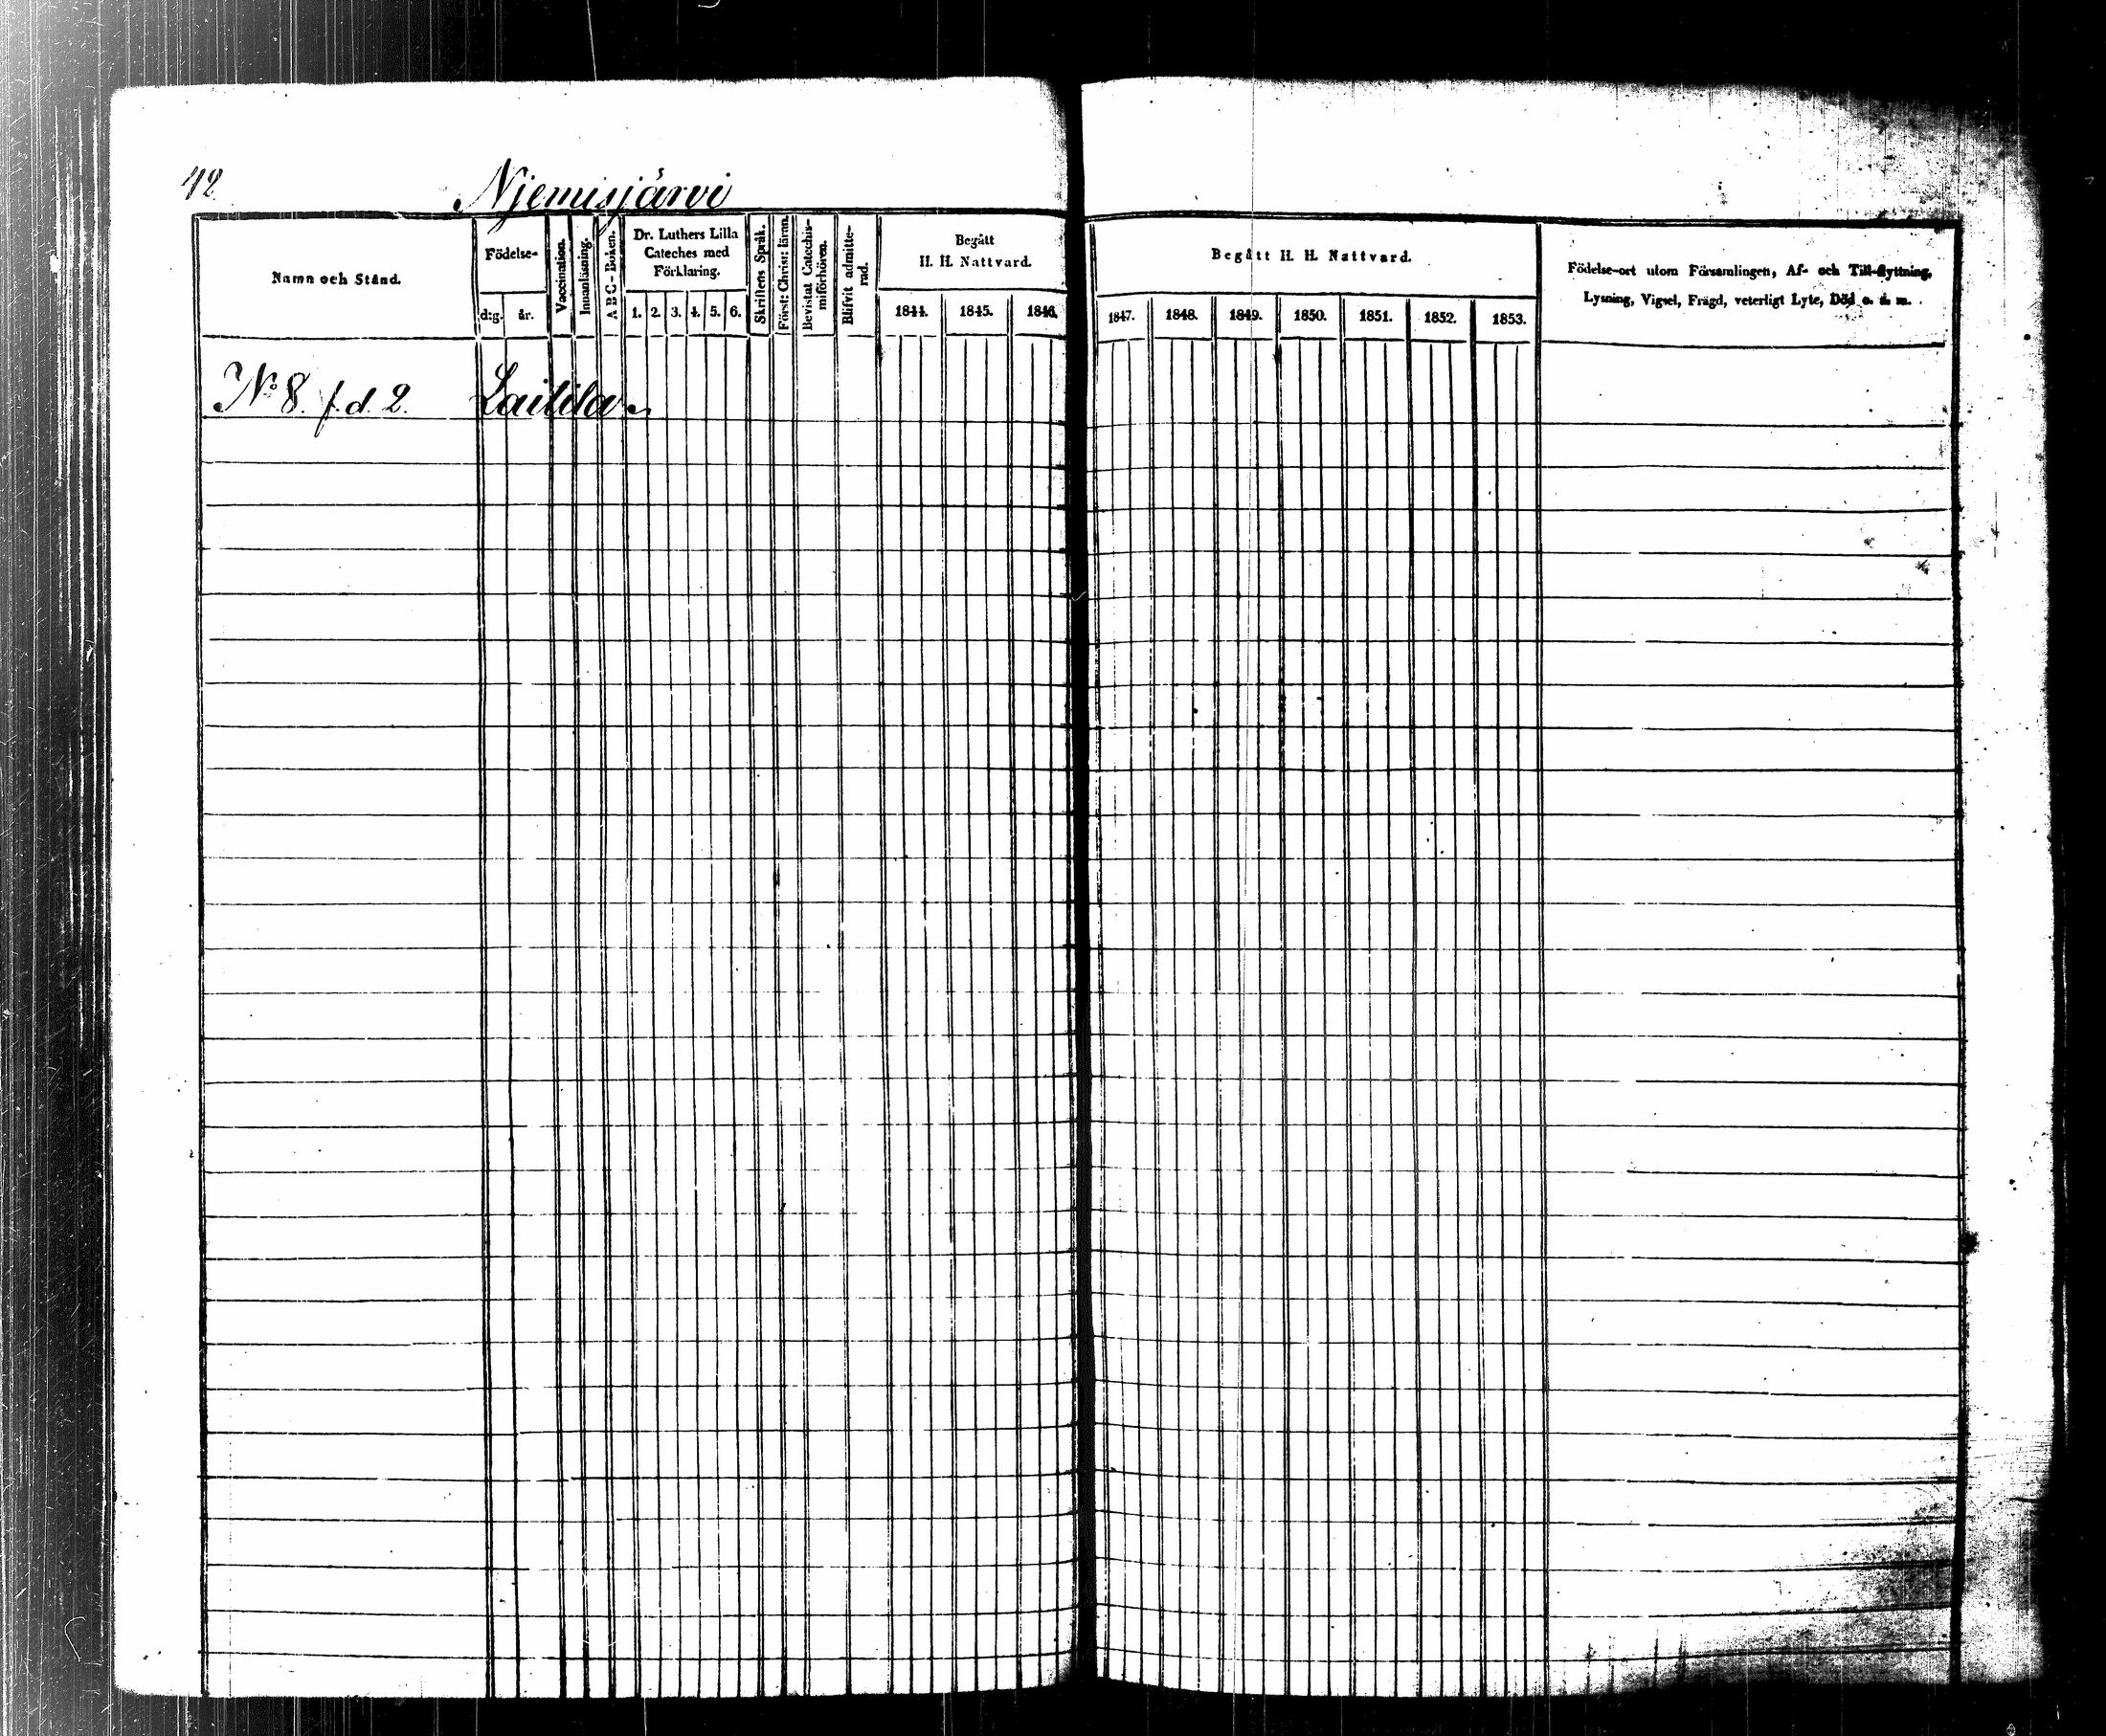 42
Njemisjärvi
Namn och Stånd.
Födelse-
d:g. år.
Vaccination.
Innanläsning.
A B C - Boken.
Dr. Luthers Lilla
Cateches med
Förklaring.
1. 2. 3. 4. 5. 6.
Skriftens Språk.
Först: Christ: läran.
Bevistat Catechis-
miförhören.
Blifvit admitte-
rad.
Begått
H. H. Nattvard.
1844. 1845. 1846.
Begått H. H. Nattvard.
1847. 1848. 1849. 1850. 1851. 1852. 1853.
Födelse-ort utom Församlingen, Af- och Till-flyttning,
Lysning, Vigsel, Frägd, veterligt Lyte, Död o. s. m.
No 8. f. d. 2. Laitila